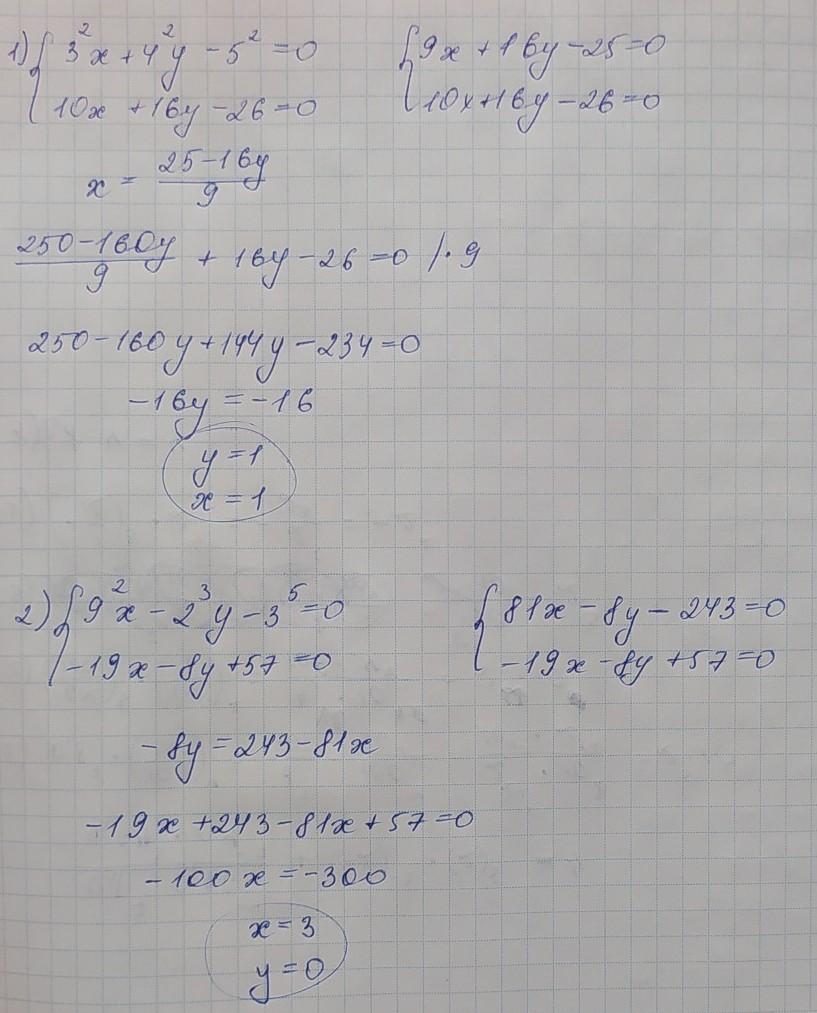 1) { 3²x + 4²y - 5² = 0    { 9x + 16y - 25 = 0
10x + 16y - 26 = 0    10x + 16y - 26 = 0
x = (25 - 16y)/9
(250 - 160y)/9 + 16y - 26 = 0 /· 9
250 - 160y + 144y - 234 = 0
-16y = -16
y = 1
x = 1
2) { 9²x - 2³y - 3⁵ = 0    { 81x - 8y - 243 = 0
-19x - 8y + 57 = 0    -19x - 8y + 57 = 0
-8y = 243 - 81x
-19x + 243 - 81x + 57 = 0
-100x = -300
x = 3
y = 0